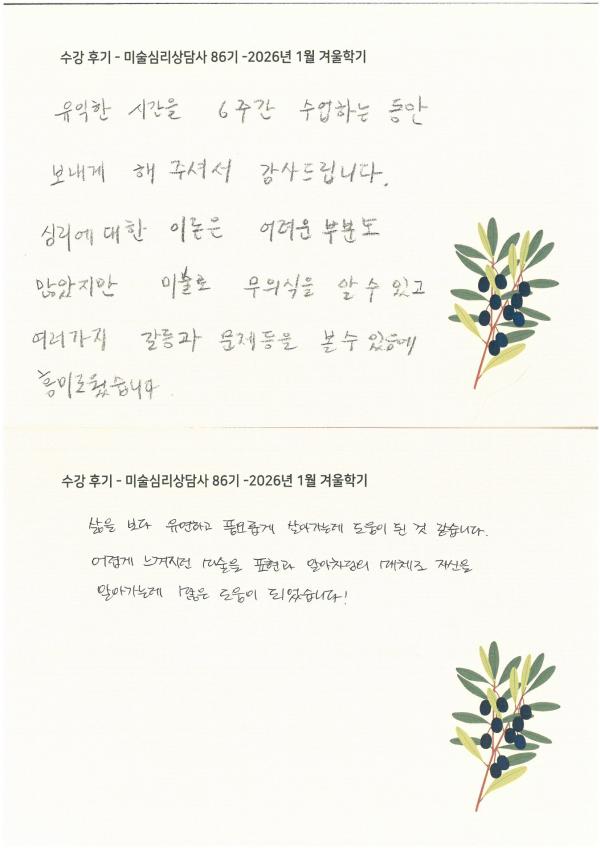 수강 후기 - 미술심리상담사 86기 -2026년 1월 겨울학기
유익한 시간을 6주간 수업하는 동안
보내게 해 주셔서 감사드립니다.
심리에 대한 이론은 어려운 부분도
많았지만 미술로 무의식을 알 수 있고
여러가지 갈등과 문제등을 볼 수 있음에
흥미로웠습니다.
수강 후기 - 미술심리상담사 86기 -2026년 1월 겨울학기
삶을 보다 유연하고 풍요롭게 살아가는데 도움이 된 것 같습니다.
어렵게 느껴지던 미술을 표현과 알아차림의 매체로 자신을
알아가는데 많은 도움이 되었습니다!